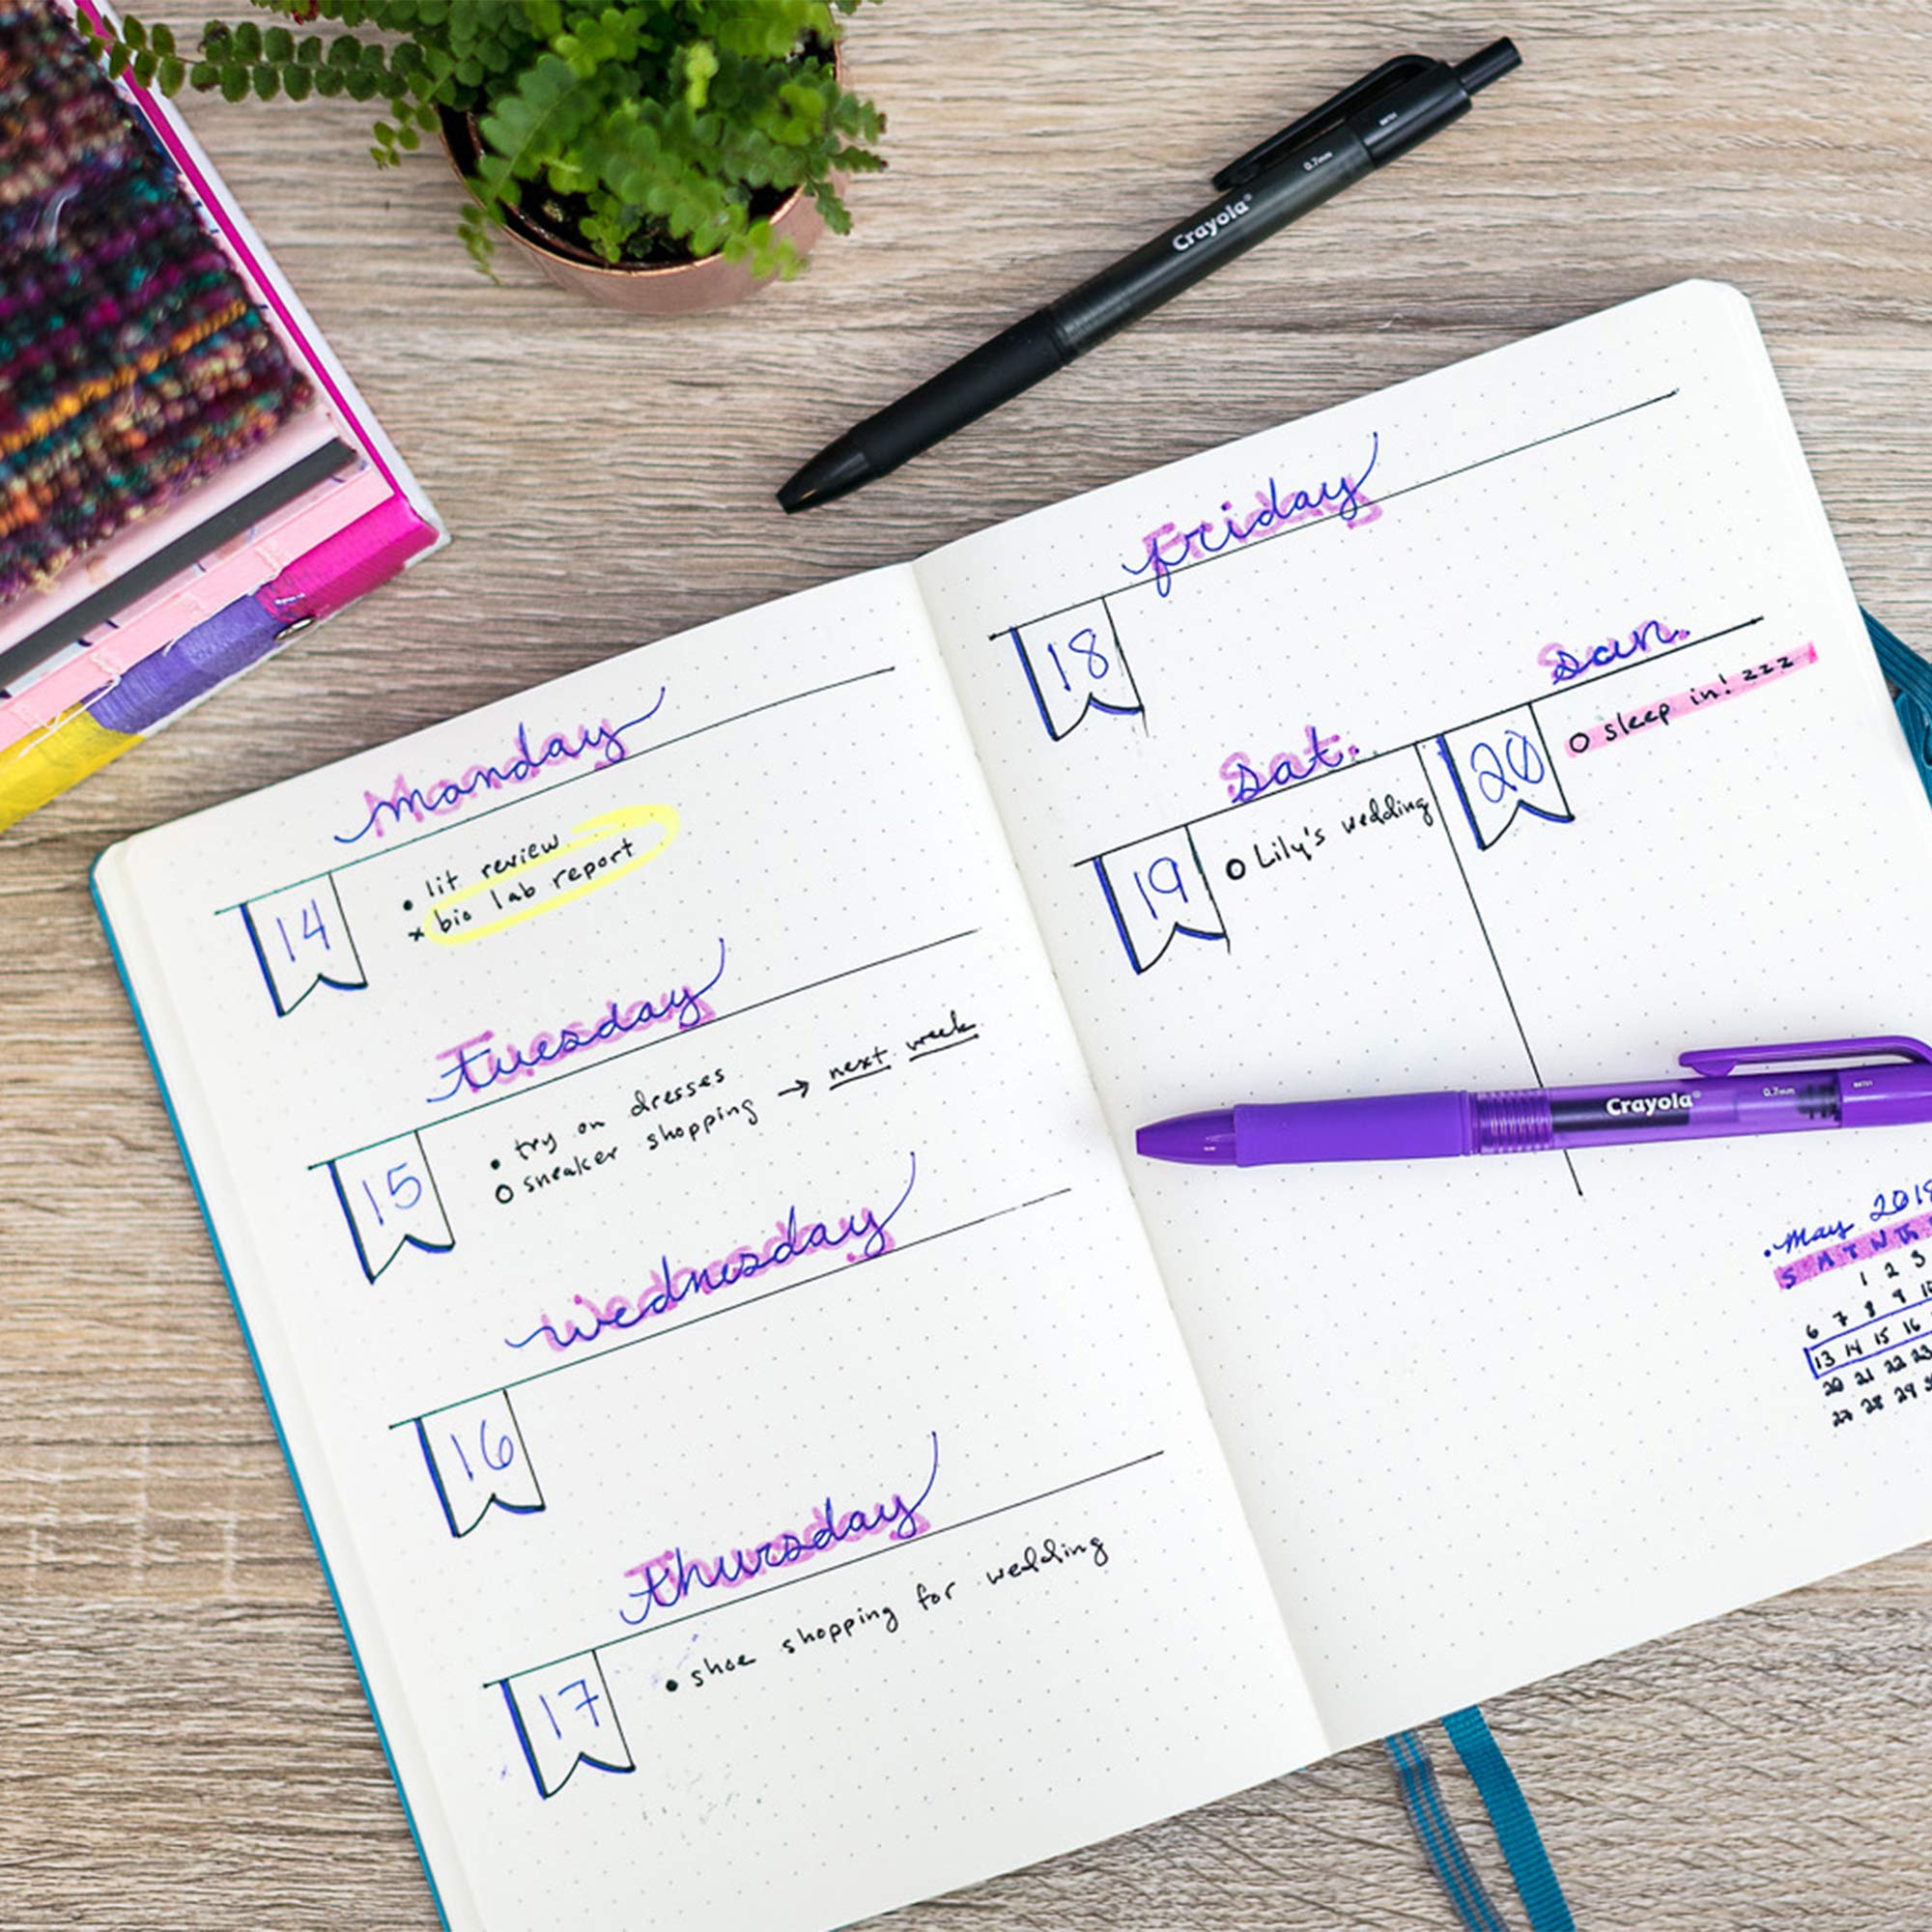 Monday
14
• lit review
x bio lab report
Tuesday
15
• try on dresses
o sneaker shopping → next week
Wednesday
16
Thursday
17
• shoe shopping for wedding
Friday
18
sat.
19
o Lily's wedding
sun.
20
o sleep in! zzz
• May 2018
S M T W Th
1 2 3
6 7 8 9 10
13 14 15 16
20 21 22 23
27 28 29
Crayola®
0.7mm
Crayola®
0.7mm